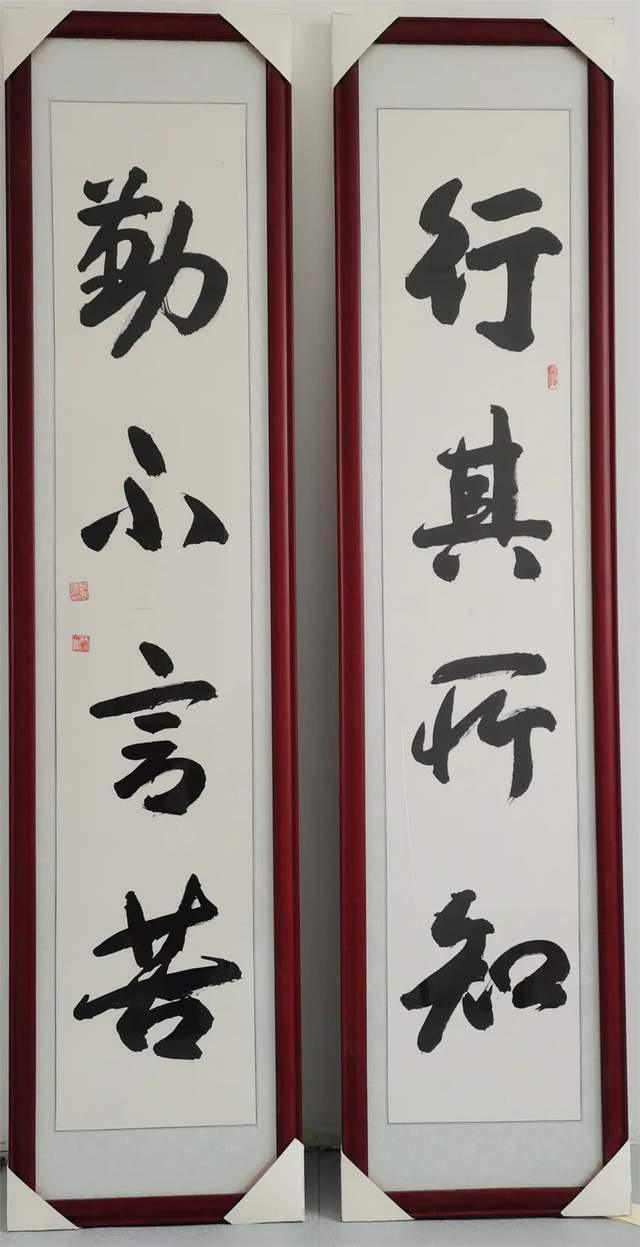 行其所知
勤不言苦